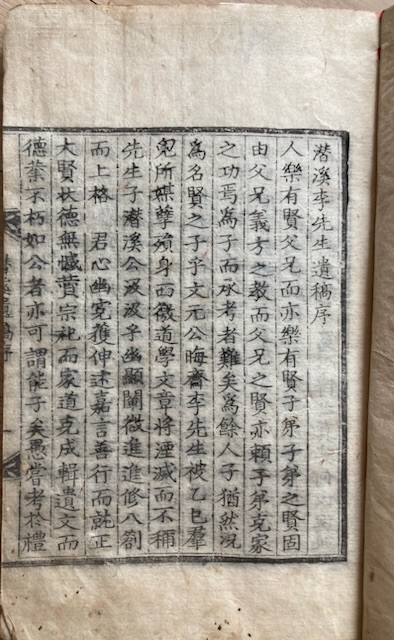 潛溪李先生遺稿序
人樂有賢父兄而亦樂有賢子弟子弟之賢固
由父兄義方之教而父兄之賢亦賴子弟克家
之功焉爲子而承考者難矣爲餘人子猶然況
爲名賢之子乎文元公晦齋李先生被乙巳羣
兇所媒孽殞身西徼道學文章將湮滅而不稱
先生子潛溪公汲汲乎幽顯闡微進進修八劄
而上格 君心幽寃獲伸述嘉言善行而就正
大賢狀德無憾賁宗祀而家道克成輯遺文而
德業不朽如公者亦可謂能子矣愚嘗考於禮